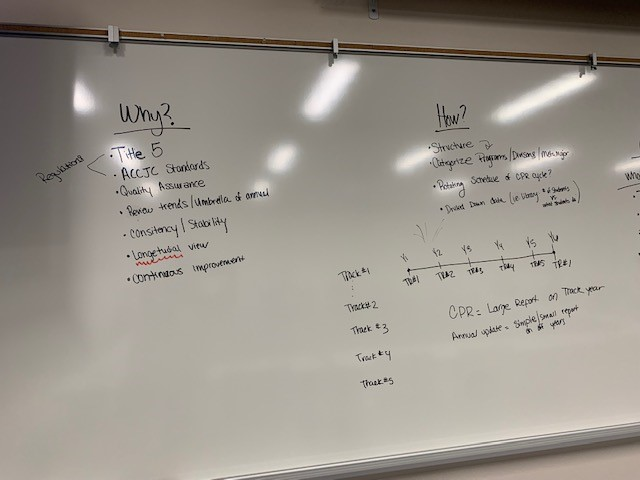 Why?
Regulations
• Title 5
• ACCJC Standards
• Quality Assurance
• Review trends/Umbrella of annual
• Consitency / Stability
• Longetudial view
• Continuous improvement
How?
• Structure
• Categorize Programs/Divisions/Meta major
• Rotating Schedule of CPR cycle?
• Drilled Down data (ie Library # of students vs.
Y1 Y2 Y3 Y4 Y5 Y6
TR#1 TR#2 TR#3 TR#4 TR#5 TR#1
Track #1
Track #2
Track #3
Track #4
Track #5
CPR = Large Report on Track year
Annual update = Simple/small report
on off years